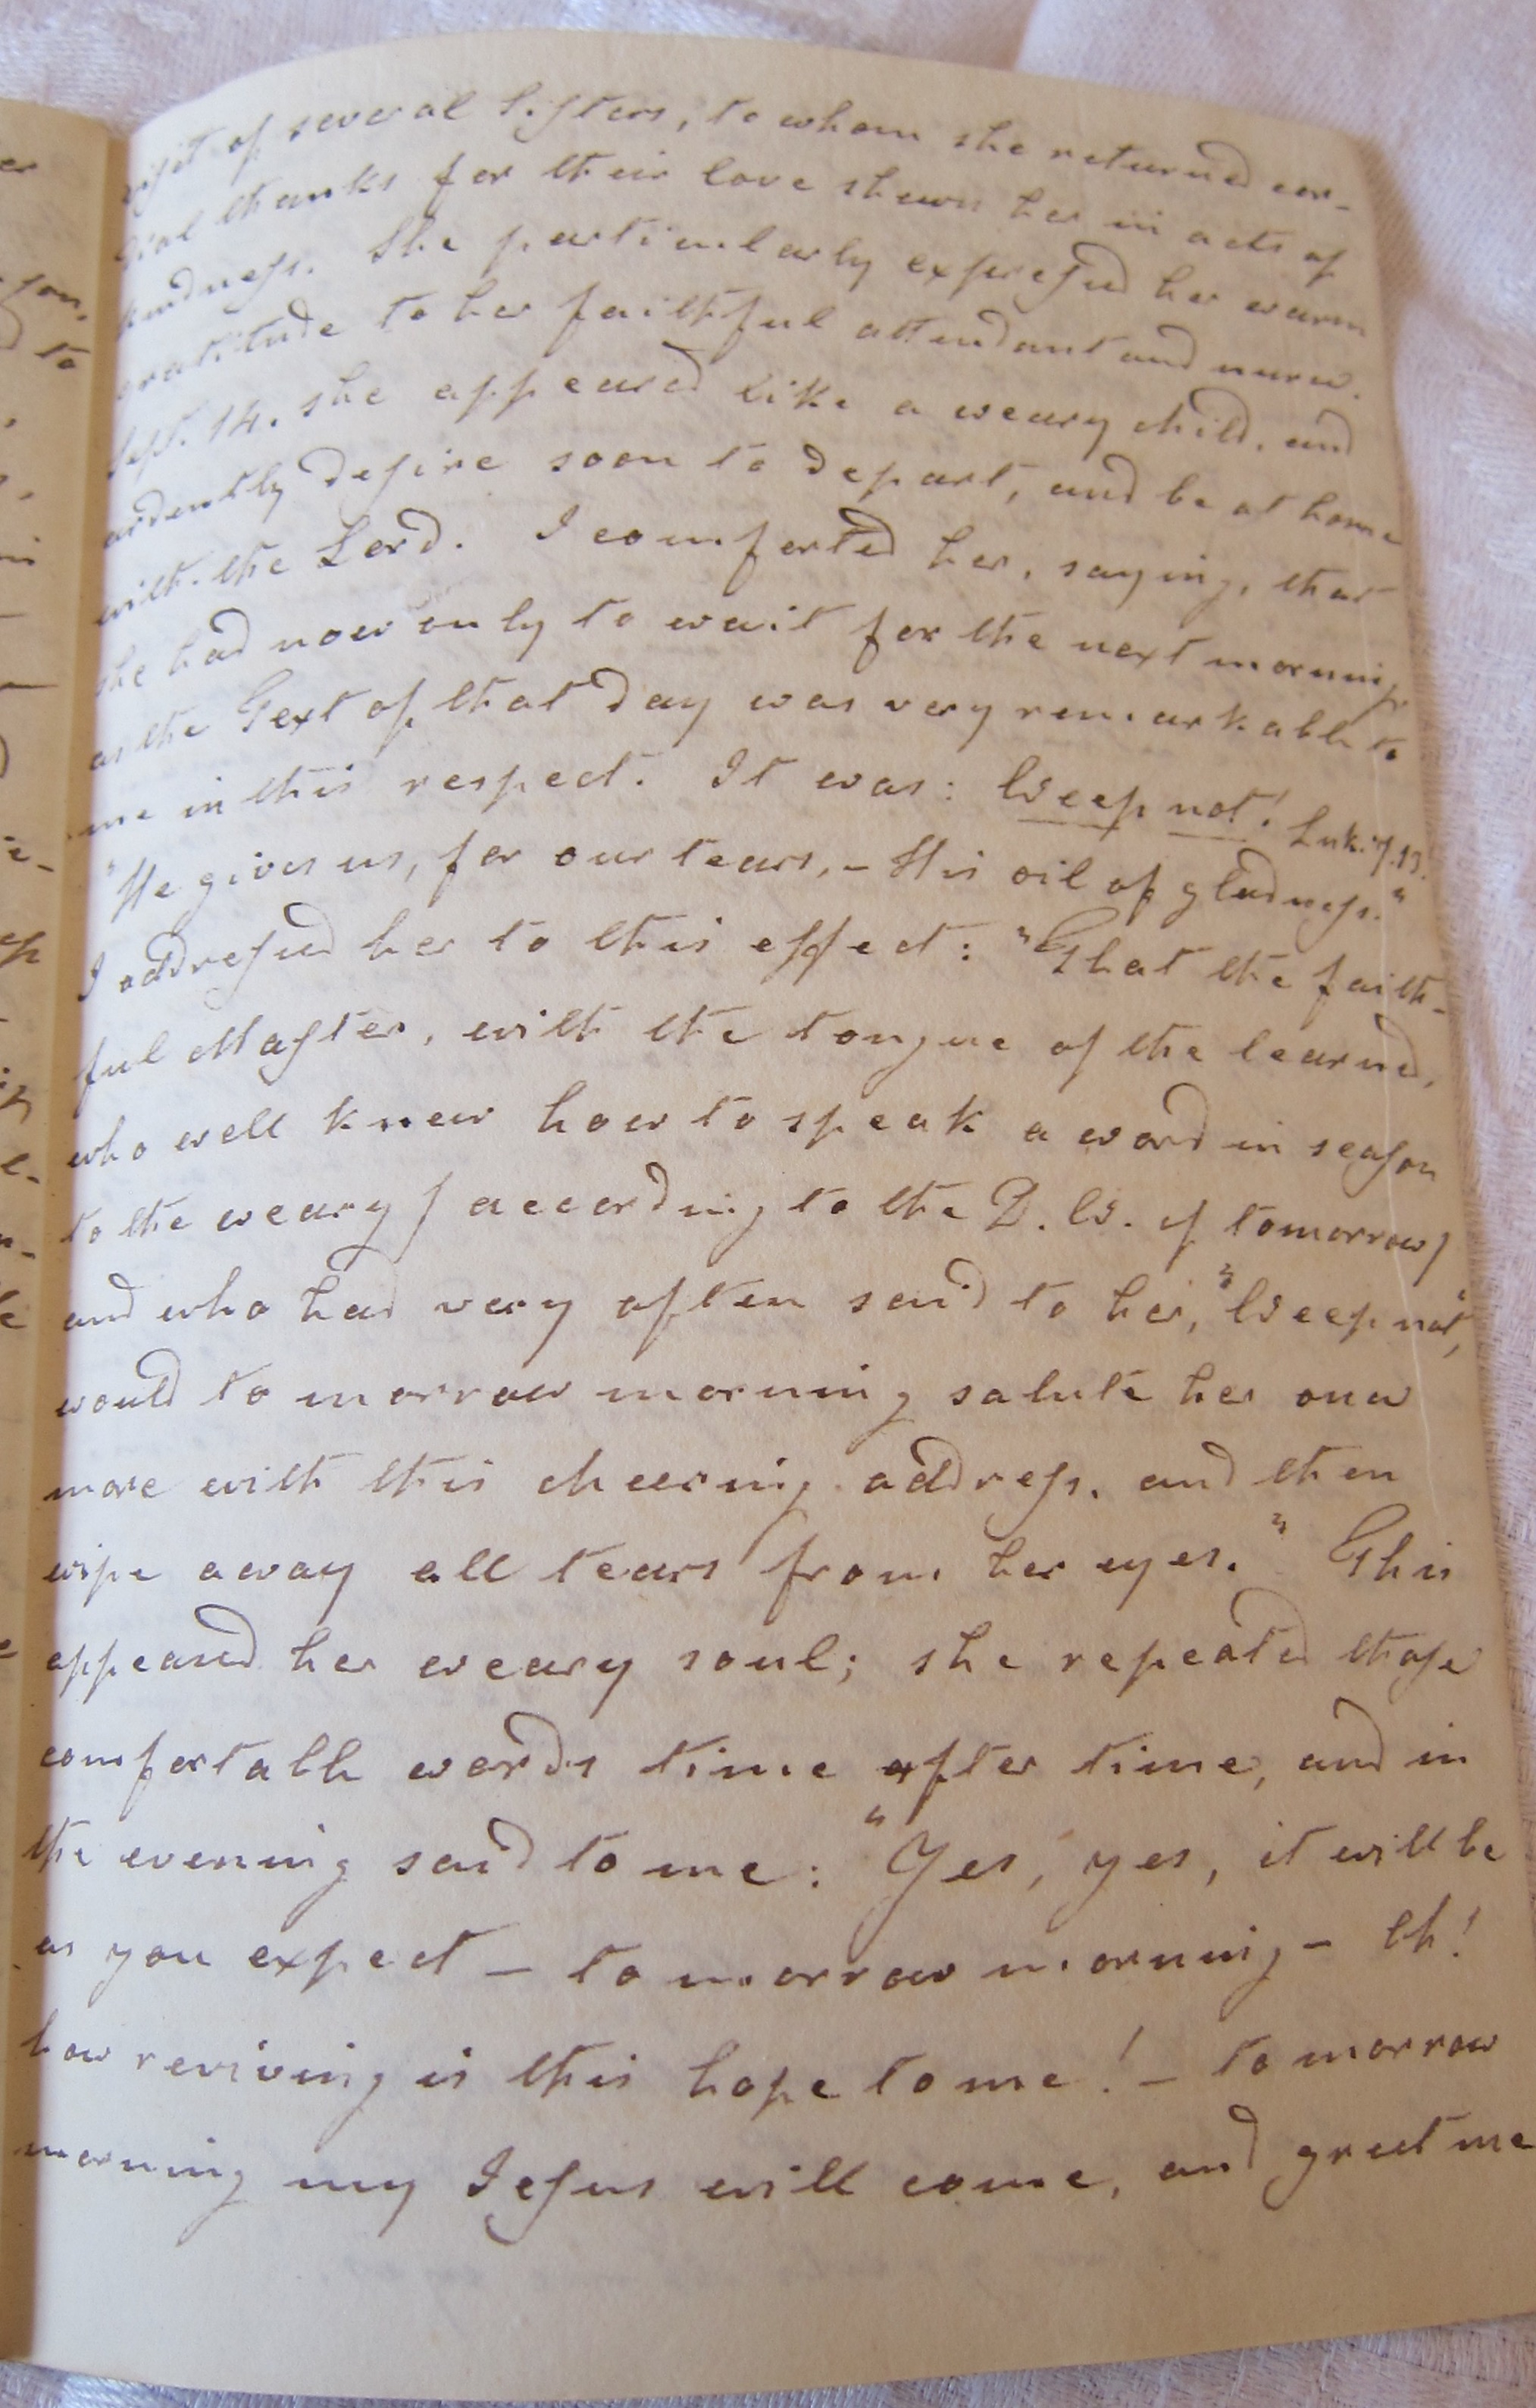 visit of several Sisters, to whom she returned cor-
dial thanks for their love shewn her in acts of
kindness. She particularly expressed her warm
gratitude to her faithful attendant and nurse.
Sept. 14. she appeared like a weary child, and
ardently desire soon to depart, and be at home
with the Lord. I comforted her, saying, that
she had now only to wait for the next morning
as the Text of that day was very remarkable to
me in this respect. It was: Weep not! Luk. 7.13.
"He gives us, for our tears, – His oil of gladness."
I addressed her to this effect: "That the faith-
ful Master, with the tongue of the learned,
who well knew how to speak a word in season
to the weary / according to the D. W. of tomorrow /
and who had very often said to her, "Weep not",
would to morrow morning salute her once
more with this cheering address, and then
wipe away all tears from her eyes." This
appeased her weary soul; she repeated those
comfortable words time after time, and in
the evening said to me: "Yes, yes, it will be
as you expect – to morrow morning – Oh!
how reviving is this hope to me! – to morrow
morning my Jesus will come, and greet me